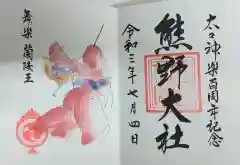 太々神楽百周年記念
熊野大社
令和三年七月四日
舞楽 蘭陵王